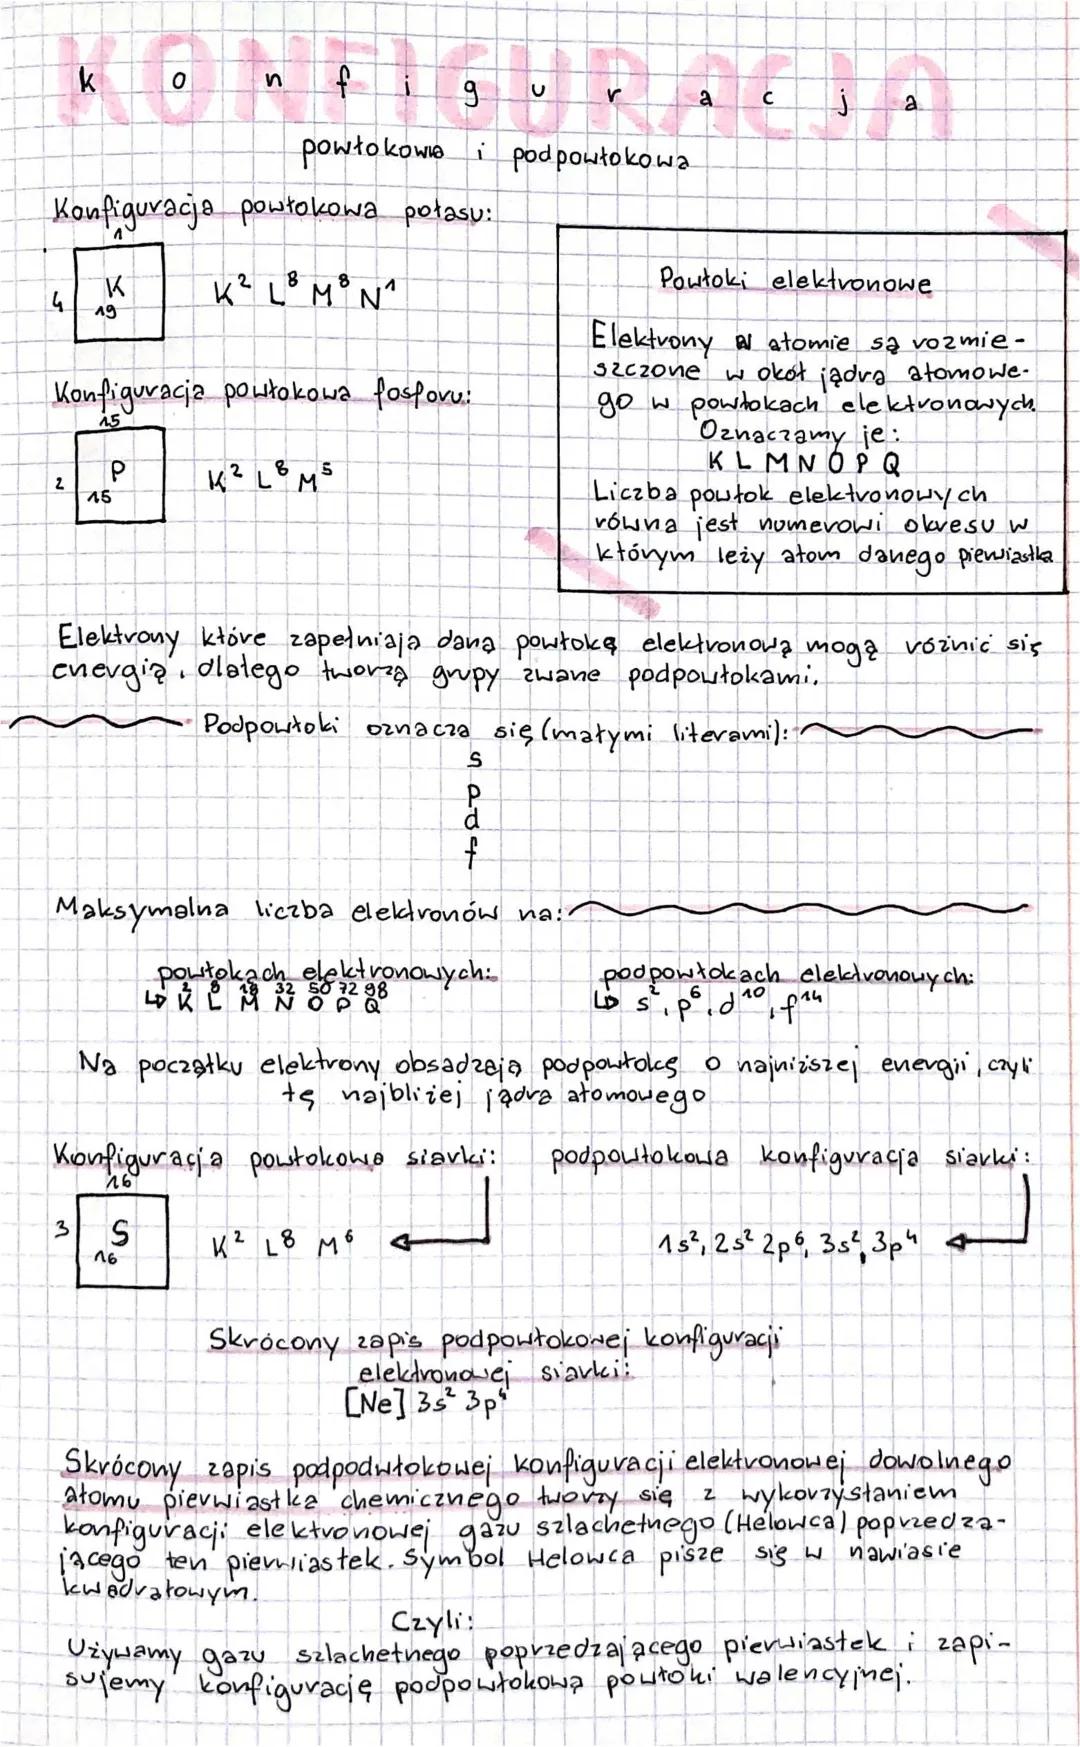 KONFIGURACJA
konfiguracja
powłokowa i podpowłokowa
Konfiguracja powłokowa potasu:
1
4 K
19
K² L⁸ M⁸ N¹
Powłoki elektronowe
Elektrony w atomie są rozmie-
szczone w okół jądra atomowe-
go w powłokach elektronowych.
Oznaczamy je:
K L M N O P Q
Liczba powłok elektronowych
równa jest numerowi okresu w
którym leży atom danego pierwiastka
Konfiguracja powłokowa fosforu:
15
2 P
15
K² L⁸ M⁵
Elektrony które zapełniają daną powłokę elektronową mogą różnić się
energią, dlatego tworzą grupy zwane podpowłokami.
Podpowłoki oznacza się (małymi literami):
s
p
d
f
Maksymalna liczba elektronów na:
powłokach elektronowych:
2 8 18 32 50 72 98
↳ K L M N O P Q
podpowłokach elektronowych:
↳ s², p⁶, d¹⁰, f¹⁴
Na początku elektrony obsadzają podpowłokę o najniższej energii, czyli
tę najbliżej jądra atomowego
Konfiguracja powłokowa siarki:
16
3 S
16
K² L⁸ M⁶
podpowłokowa konfiguracja siarki:
1s², 2s² 2p⁶, 3s², 3p⁴
Skrócony zapis podpowłokowej konfiguracji
elektronowej siarki:
[Ne] 3s² 3p⁴
Skrócony zapis podpodwłokowej konfiguracji elektronowej dowolnego
atomu pierwiastka chemicznego tworzy się z wykorzystaniem
konfiguracji elektronowej gazu szlachetnego (Helowca) poprzedza-
jącego ten pierwiastek. Symbol Helowca pisze się w nawiasie
kwadratowym.
Czyli:
Używamy gazu szlachetnego poprzedzającego pierwiastek i zapi-
sujemy konfigurację podpowłokową powłoki walencyjnej.